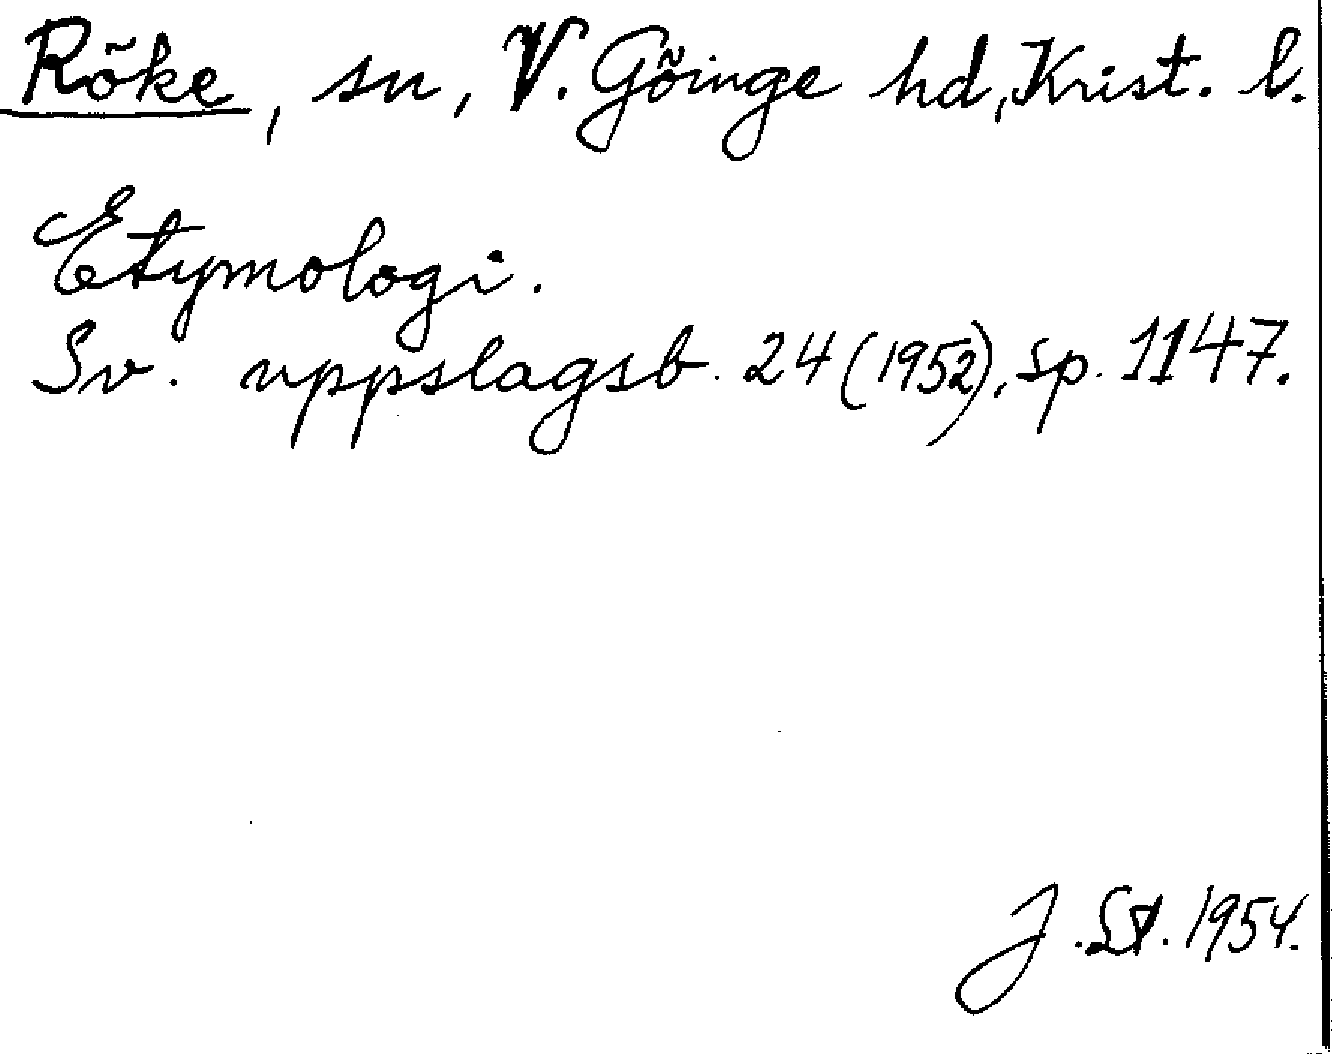 Röke, sn, V. Göinge hd, Krist. l.
Etymologi.
Sv. uppslagsb. 24 (1952), sp. 1147.
J. St. 1954.